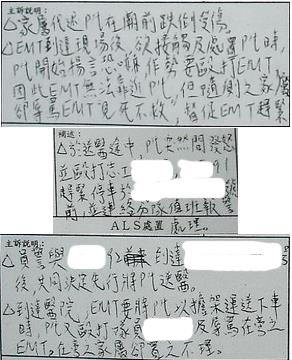 主訴說明:
△家屬代述Pt在廟前跌倒受傷。
△EMT到達現場後,欲接觸及處置Pt時,
Pt開始揚言恐嚇,作勢要毆打EMT,
因此EMT無法靠近Pt,但隨側之家屬
卻辱罵EMT"見死不救",督促EMT趕緊
補述:
△於送醫途中,Pt突然間發怒
並毆打志工
趕緊停車於
前,並連絡分隊值班報警
ALS處置 處理。
主訴說明:
△員警與 到達
後,共同決定先行將Pt送醫。
△到達醫院,EMT要將Pt以擔架運送下車
時,Pt又毆打隊員 及辱罵在旁之
EMT。在旁之家屬卻置之不理。